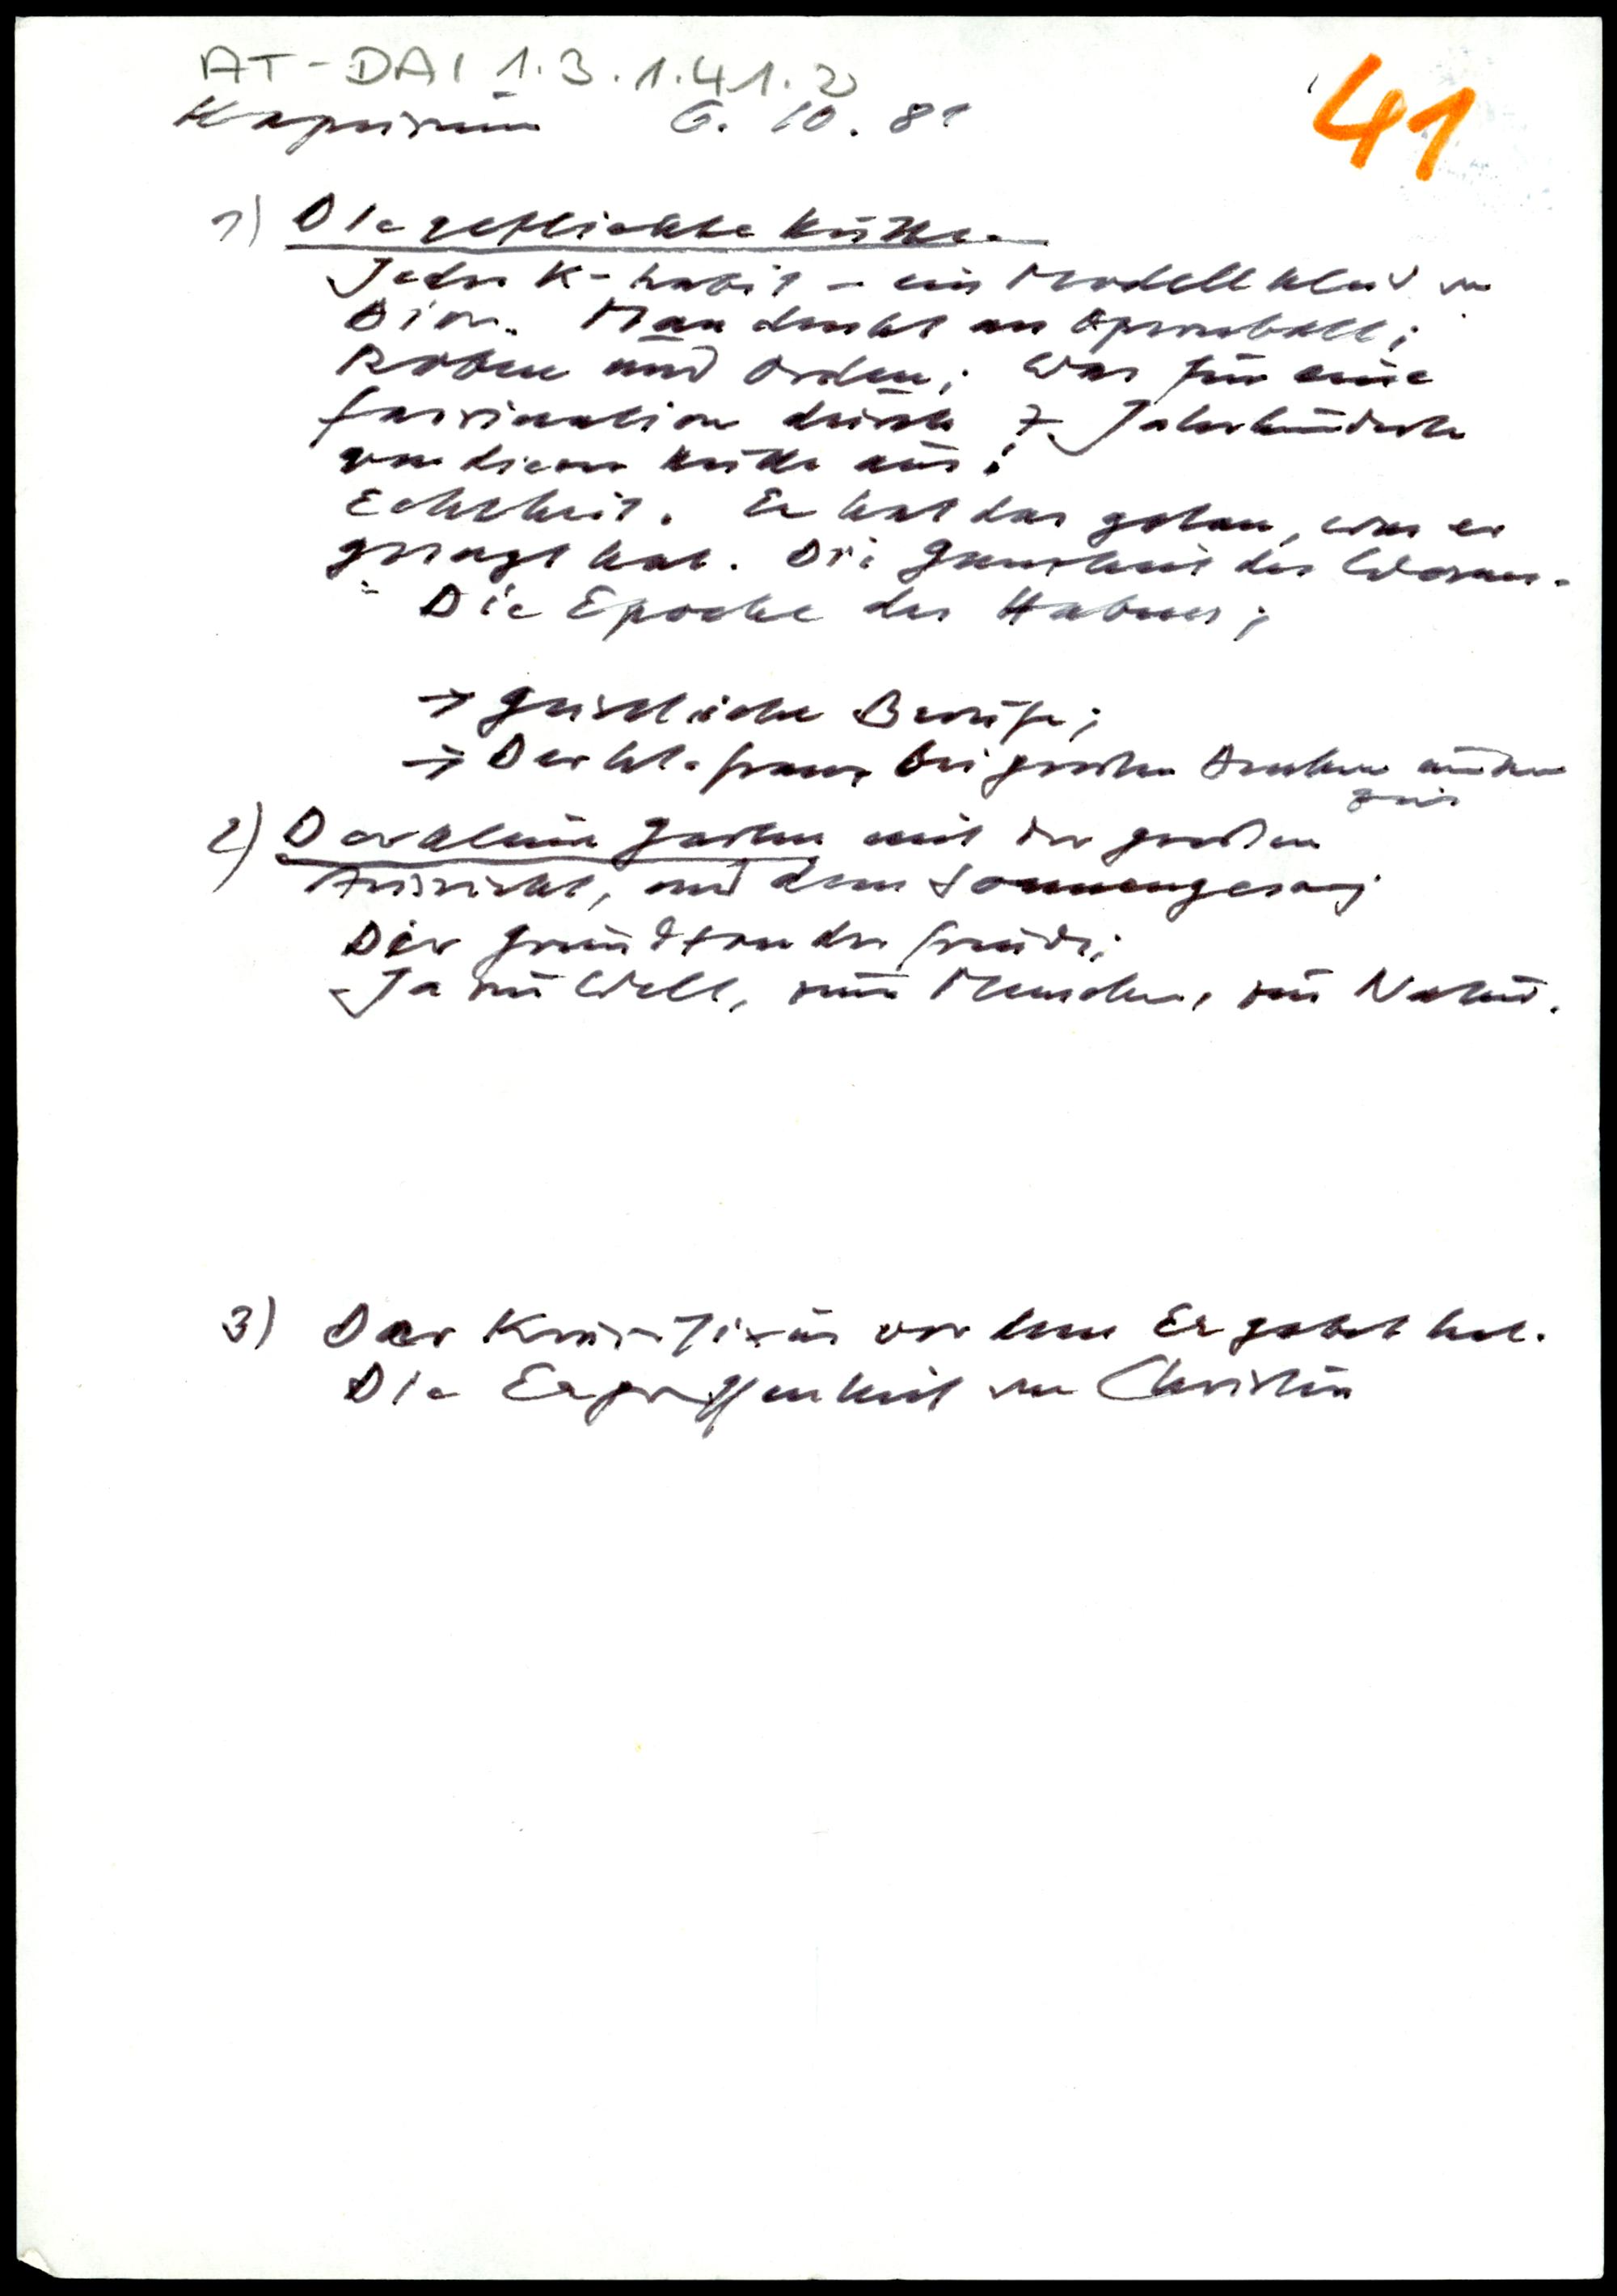 AT-DAI 1.3.1.41.2
41
Kapuziner 6. 10. 81
1) Die geflickte Kutte.
Jeder K-habit - ein Modellkleid von
Dior. Man denkt an Opernball;
Roben und Orden; Was für eine
Faszination durch 7 Jahrhunderte
von dieser Kutte aus!
Echtheit. Er hat das getan, was er
gesagt hat. Die Ganzheit des
Die Epoche des Habens;
→ Geistliche Berufe;
→ Der hl. Franz bei
2) Der kleine Garten mit der großen
Aussicht, und dem Sonnengesang
Der Grundton der Freude;
Ja zur Welt, zum Menschen, zur Natur.
3) Der Kruzifixus vor dem Er gebet hat.
Die Ergriffenheit von Christus